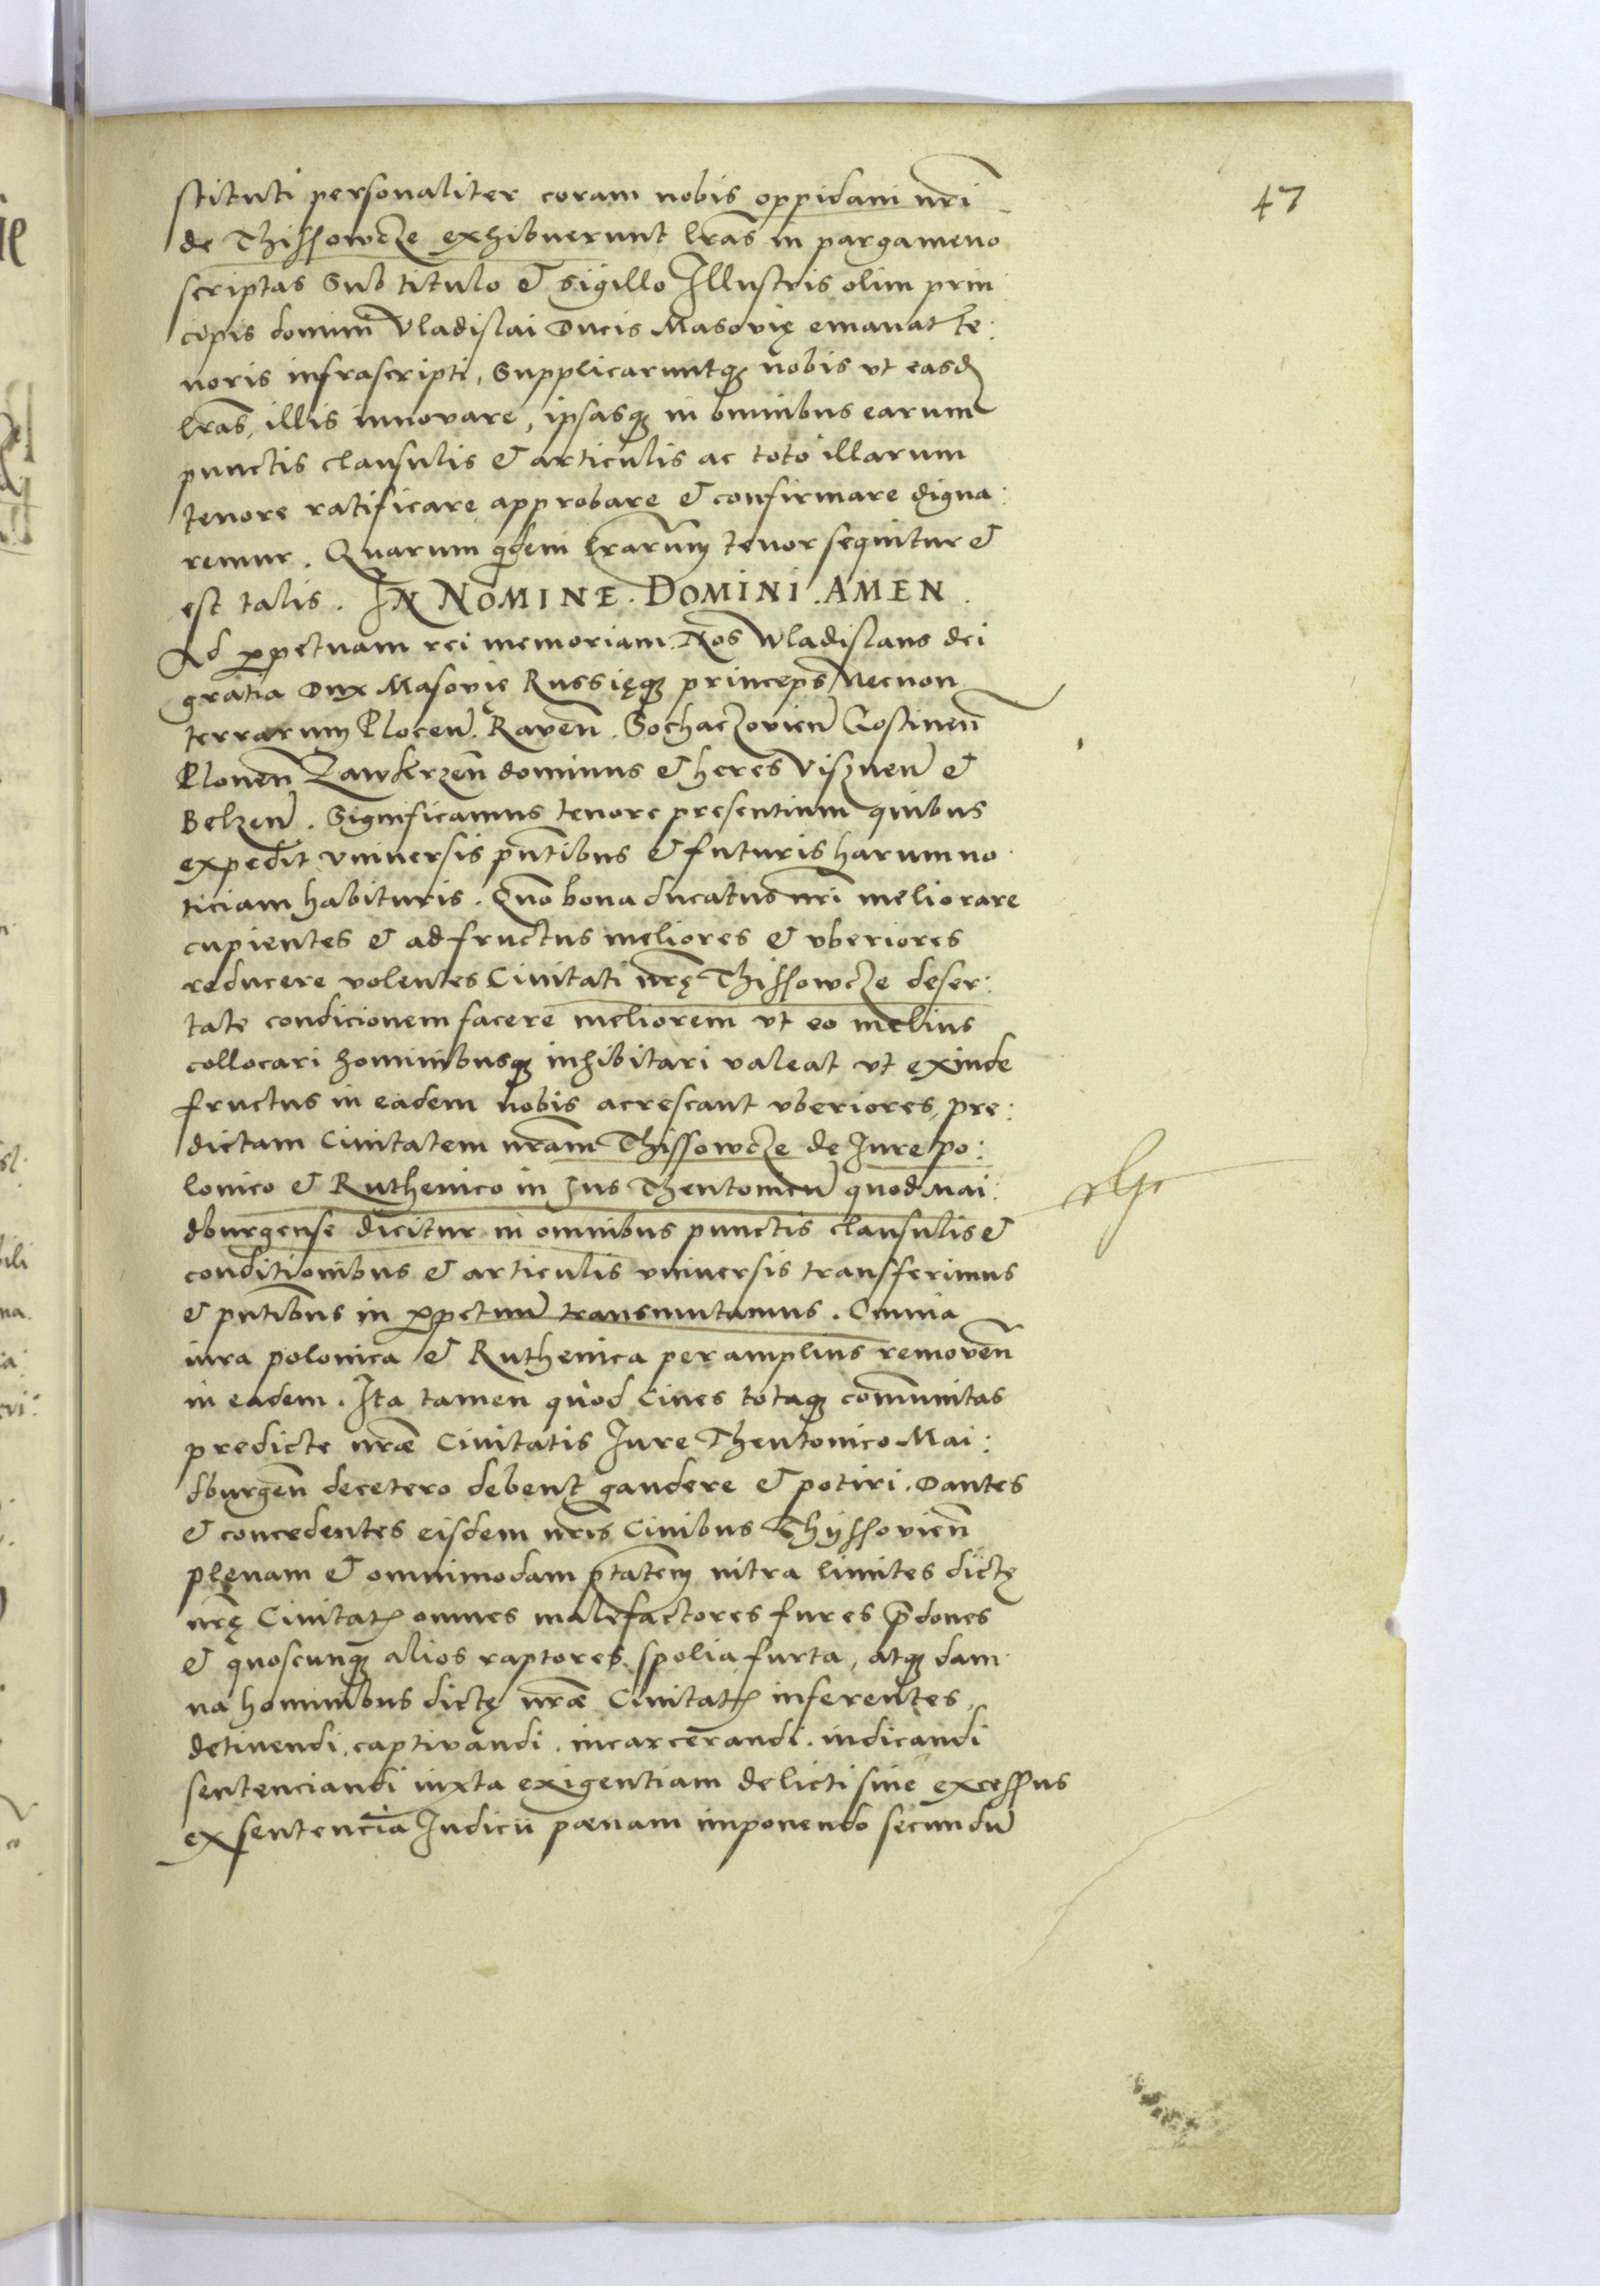 47
stituti personaliter coram nobis oppidani nr̃i
de Thissowcze exhibuerunt lr̃as in pargameno
scriptas Sub titulo & sigillo Illustris olim prin
cipis domini Vladislai Ducis Masovię emanat te:
noris infrascripti, Supplicaruntq; nobis vt easd
lr̃as, illis innovare, ipsasq; in omnibus earum
punctis clausulis & articulis ac toto illarum
tenore ratificare approbare & confirmare digna:
remur. Quarum qdem lr̃arum tenor sequitur &
est talis. IN NOMINE. DOMINI. AMEN.
Ad ꝑpetuam rei memoriam. Nos Wladislaus dei
gratia Dux Masovię Russięq; princeps Necnon
terrarum Plocen̄. Raven̄. Sochaczovien̄ Gostinen̄
Plonen̄ Zawkrzen̄ dominus & heres Visznen̄ &
Belzen̄. Significamus tenore presentium quibus
expedit vniversis pn̄tibus & futuris harum no
ticiam habituris. Quō bona ducatus nr̃i meliorare
cupientes & ad fructus meliores & vberiores
reducere volentes Civitati nr̃ę Thissowcze deser:
tate condicionem facere meliorem vt eo melius
collocari hominibusq; inhibitari valeat vt exinde
fructus in eadem nobis acrescant vberiores, pre:
dictam Civitatem nr̃am Thissowcze de Iure po:
lonico & Ruthenico in Ius Theutonicū quod Mai:
dburgense dicitur in omnibus punctis clausulis &
conditionibus & articulis vniversis transferimus
& pn̄tibus in ꝑpetuū transmutamus. Omnia
iura polonica & Ruthenica per amplius removen̄
in eadem. Ita tamen quod Cives totaq; com̄unitas
predicte nr̃æ Civitatis Iure Theutonico Mai:
dburgen̄ decetero debent gaudere & potiri. Dantes
& concedentes eisdem nr̃is Civibus Thyssovien̄
plenam & omnimodam ptātem nitra limites dictę
nr̃ę Civitatꝭ omnes malefactores fures p̄dones
& quoscunq; alios raptores spolia furta, atq; dam
na hominibus dictę nr̃æ Civitatꝭ inferentes,
detinendi, captivandi. incarcerandi. iudicandi
sentenciandi iuxta exigentiam delicti sive excessus
ex sentencia Iudicii pœnam imponendo secundū